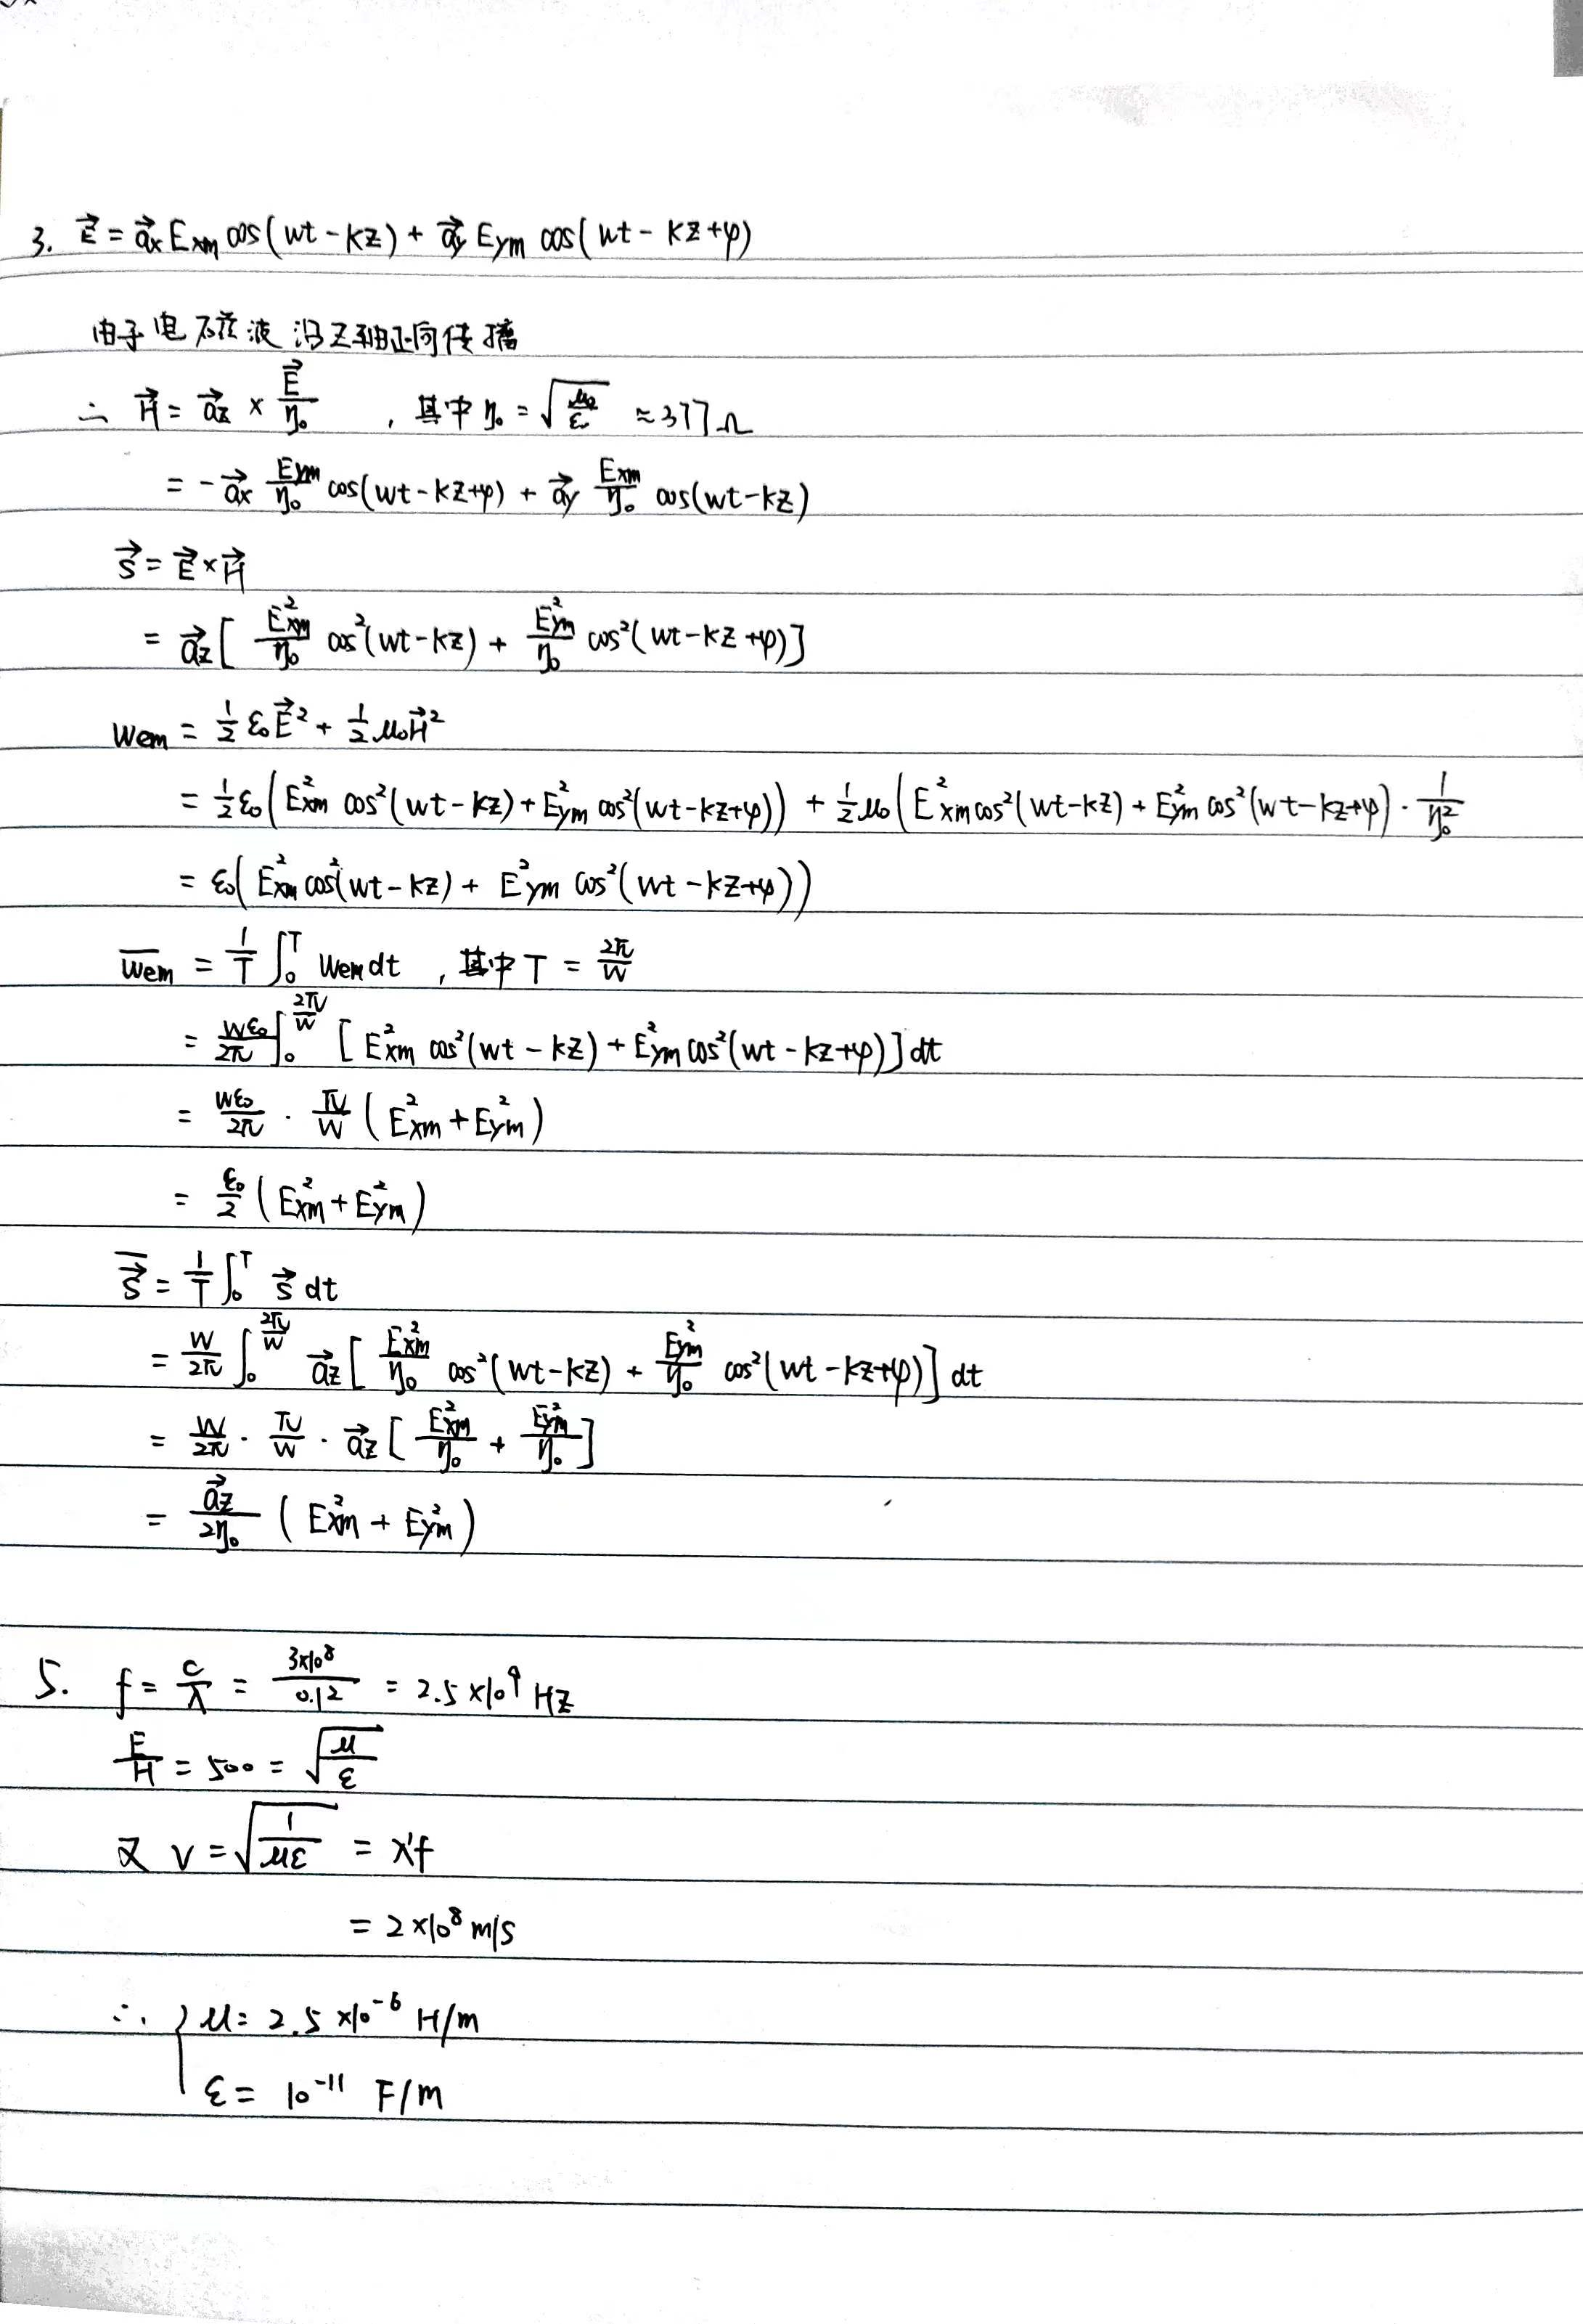 3. \vec{E} = \vec{a_x} E_{xm} cos(wt-kz) + \vec{a_y} E_{ym} cos(wt-kz+φ)
由于电磁波沿Z轴正向传播
∴ \vec{H} = \vec{a_z} × \frac{\vec{E}}{η_0} , 其中 η_0 = \sqrt{\frac{μ_0}{ε_0}} ≈ 377Ω
= -\vec{a_x} \frac{E_{ym}}{η_0} cos(wt-kz+φ) + \vec{a_y} \frac{E_{xm}}{η_0} cos(wt-kz)
\vec{S} = \vec{E} × \vec{H}
= \vec{a_z} [ \frac{E_{xm}^2}{η_0} cos^2(wt-kz) + \frac{E_{ym}^2}{η_0} cos^2(wt-kz+φ) ]
w_{em} = \frac{1}{2} ε_0 \vec{E}^2 + \frac{1}{2} μ_0 \vec{H}^2
= \frac{1}{2} ε_0 ( E_{xm}^2 cos^2(wt-kz) + E_{ym}^2 cos^2(wt-kz+φ) ) + \frac{1}{2} μ_0 ( E_{xm}^2 cos^2(wt-kz) + E_{ym}^2 cos^2(wt-kz+φ) · \frac{1}{η_0^2}
= ε_0 ( E_{xm}^2 cos^2(wt-kz) + E_{ym}^2 cos^2(wt-kz+φ) )
\overline{w_{em}} = \frac{1}{T} ∫_0^T w_{em} dt , 其中 T = \frac{2π}{w}
= \frac{wε_0}{2π} ∫_0^{\frac{2π}{w}} [ E_{xm}^2 cos^2(wt-kz) + E_{ym}^2 cos^2(wt-kz+φ) ] dt
= \frac{wε_0}{2π} · \frac{π}{w} ( E_{xm}^2 + E_{ym}^2 )
= \frac{ε_0}{2} ( E_{xm}^2 + E_{ym}^2 )
\overline{\vec{S}} = \frac{1}{T} ∫_0^T \vec{S} dt
= \frac{w}{2π} ∫_0^{\frac{2π}{w}} \vec{a_z} [ \frac{E_{xm}^2}{η_0} cos^2(wt-kz) + \frac{E_{ym}^2}{η_0} cos^2(wt-kz+φ) ] dt
= \frac{w}{2π} · \frac{π}{w} · \vec{a_z} [ \frac{E_{xm}^2}{η_0} + \frac{E_{ym}^2}{η_0} ]
= \frac{\vec{a_z}}{2η_0} ( E_{xm}^2 + E_{ym}^2 )
5. f = \frac{c}{λ} = \frac{3×10^8}{0.12} = 2.5×10^9 HZ
\frac{E}{H} = 500 = \sqrt{\frac{μ}{ε}}
又 v = \sqrt{\frac{1}{με}} = λ'f
= 2×10^8 m/s
∴ { μ = 2.5×10^{-6} H/m
ε = 10^{-11} F/m